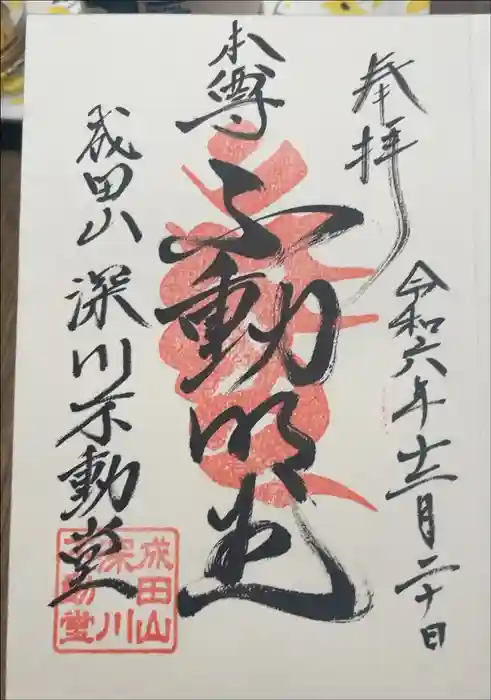 奉拝
令和六年十二月二十日
本尊
不動明王
成田山 深川不動堂
成田山
深川
不動堂